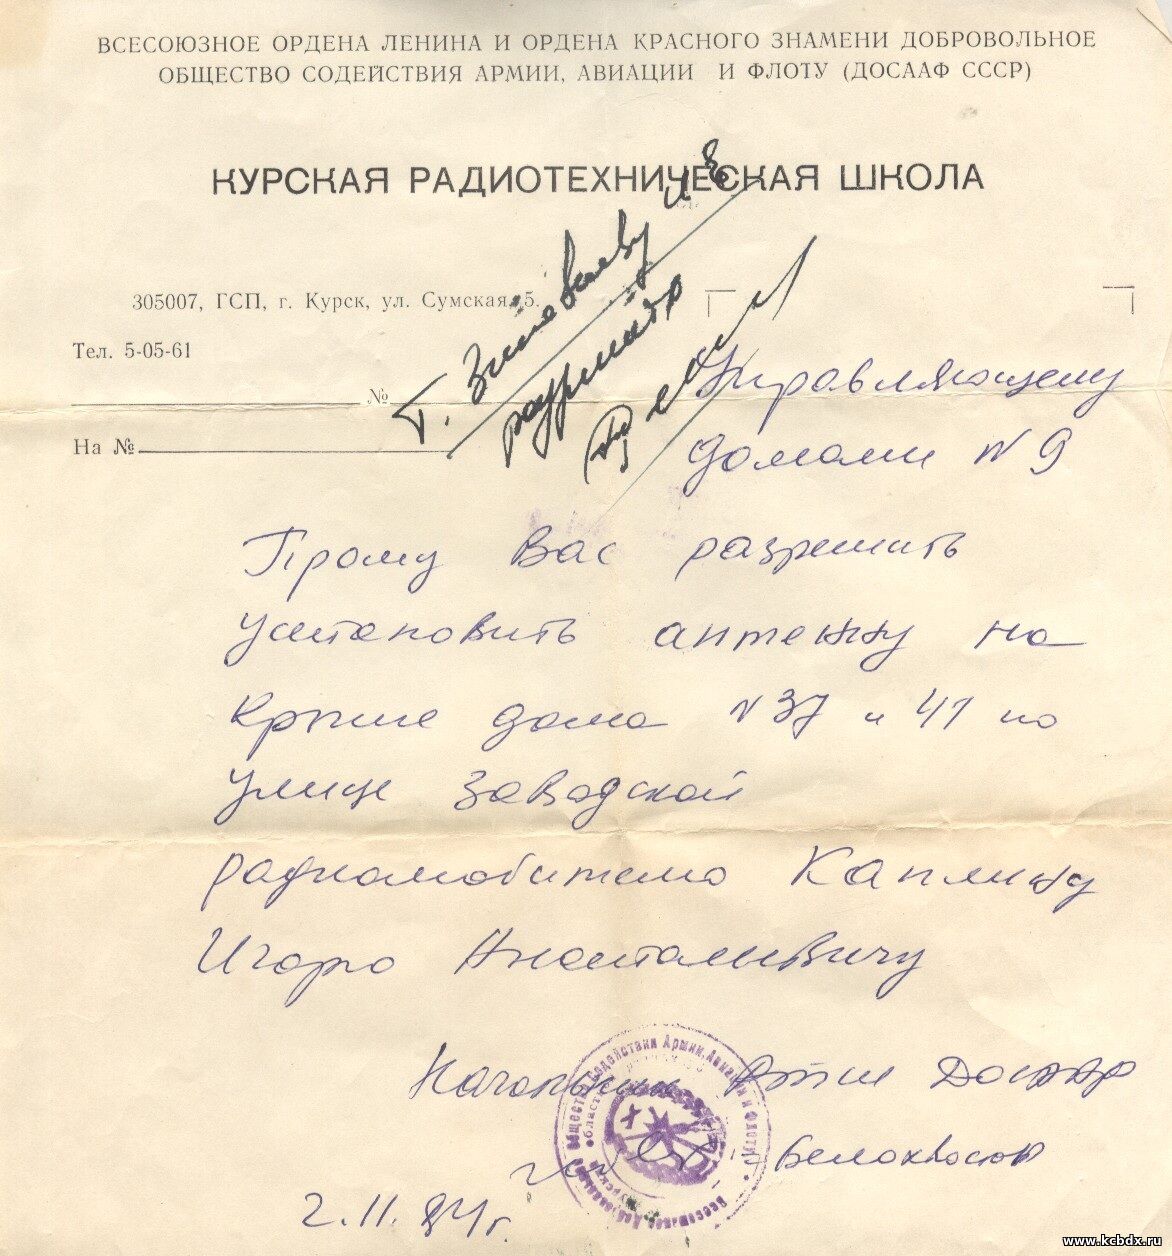 ВСЕСОЮЗНОЕ ОРДЕНА ЛЕНИНА И ОРДЕНА КРАСНОГО ЗНАМЕНИ ДОБРОВОЛЬНОЕ
ОБЩЕСТВО СОДЕЙСТВИЯ АРМИИ, АВИАЦИИ И ФЛОТУ (ДОСААФ СССР)
КУРСКАЯ РАДИОТЕХНИЧЕСКАЯ ШКОЛА
305007, ГСП, г. Курск, ул. Сумская, 5.
Тел. 5-05-61
№
На №
Управляющему
домами N 9
Прошу Вас разрешить
установить антенну на
крыше дома N 37 и 41 по
улице Заводской
радиолюбителю Каплину
Игорю Анатольевичу
Начальник РТШ ДОСААФ
Белохвостов
2.11.84г.
www.kcbdx.ru